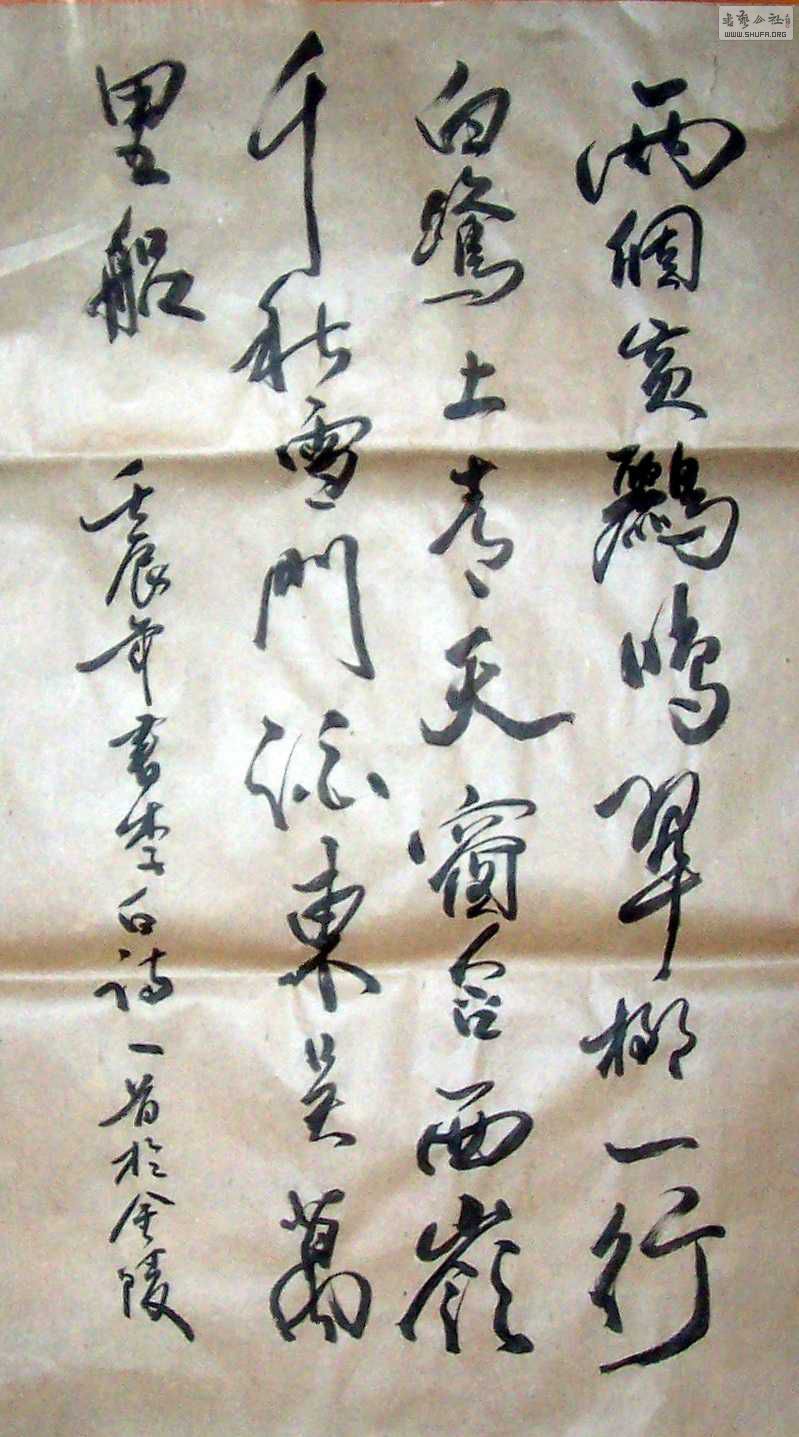 兩個黃鸝鳴翠柳一行
白鷺上青天窗含西嶺
千秋雪門泊東吳萬
里船
壬辰年書李白詩一首於金陵
書藝公社
WWW.SHUFA.ORG